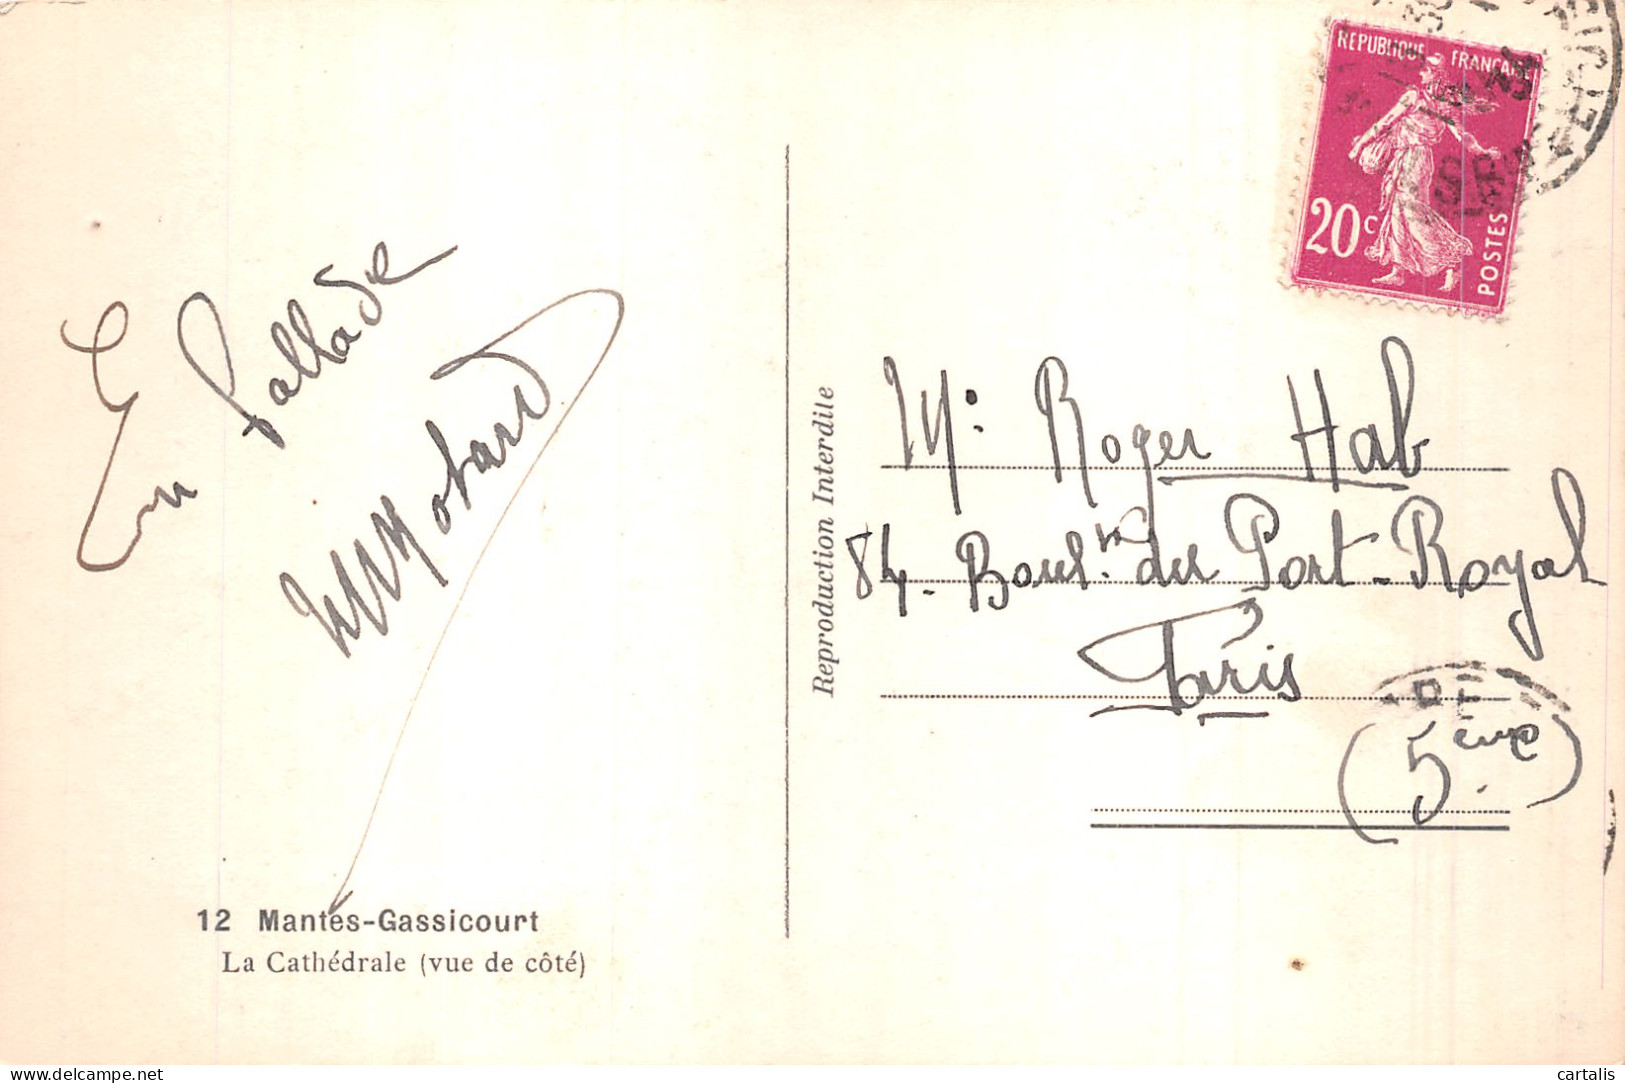 REPUBLIQUE FRANÇAISE
20c
POSTES
En ballade
Mr. Roger Hab
84. Boul. du Port-Royal
Paris
(5eme)
Reproduction Interdite
12 Mantes-Gassicourt
La Cathédrale (vue de côté)
www.delcampe.net
cartalis